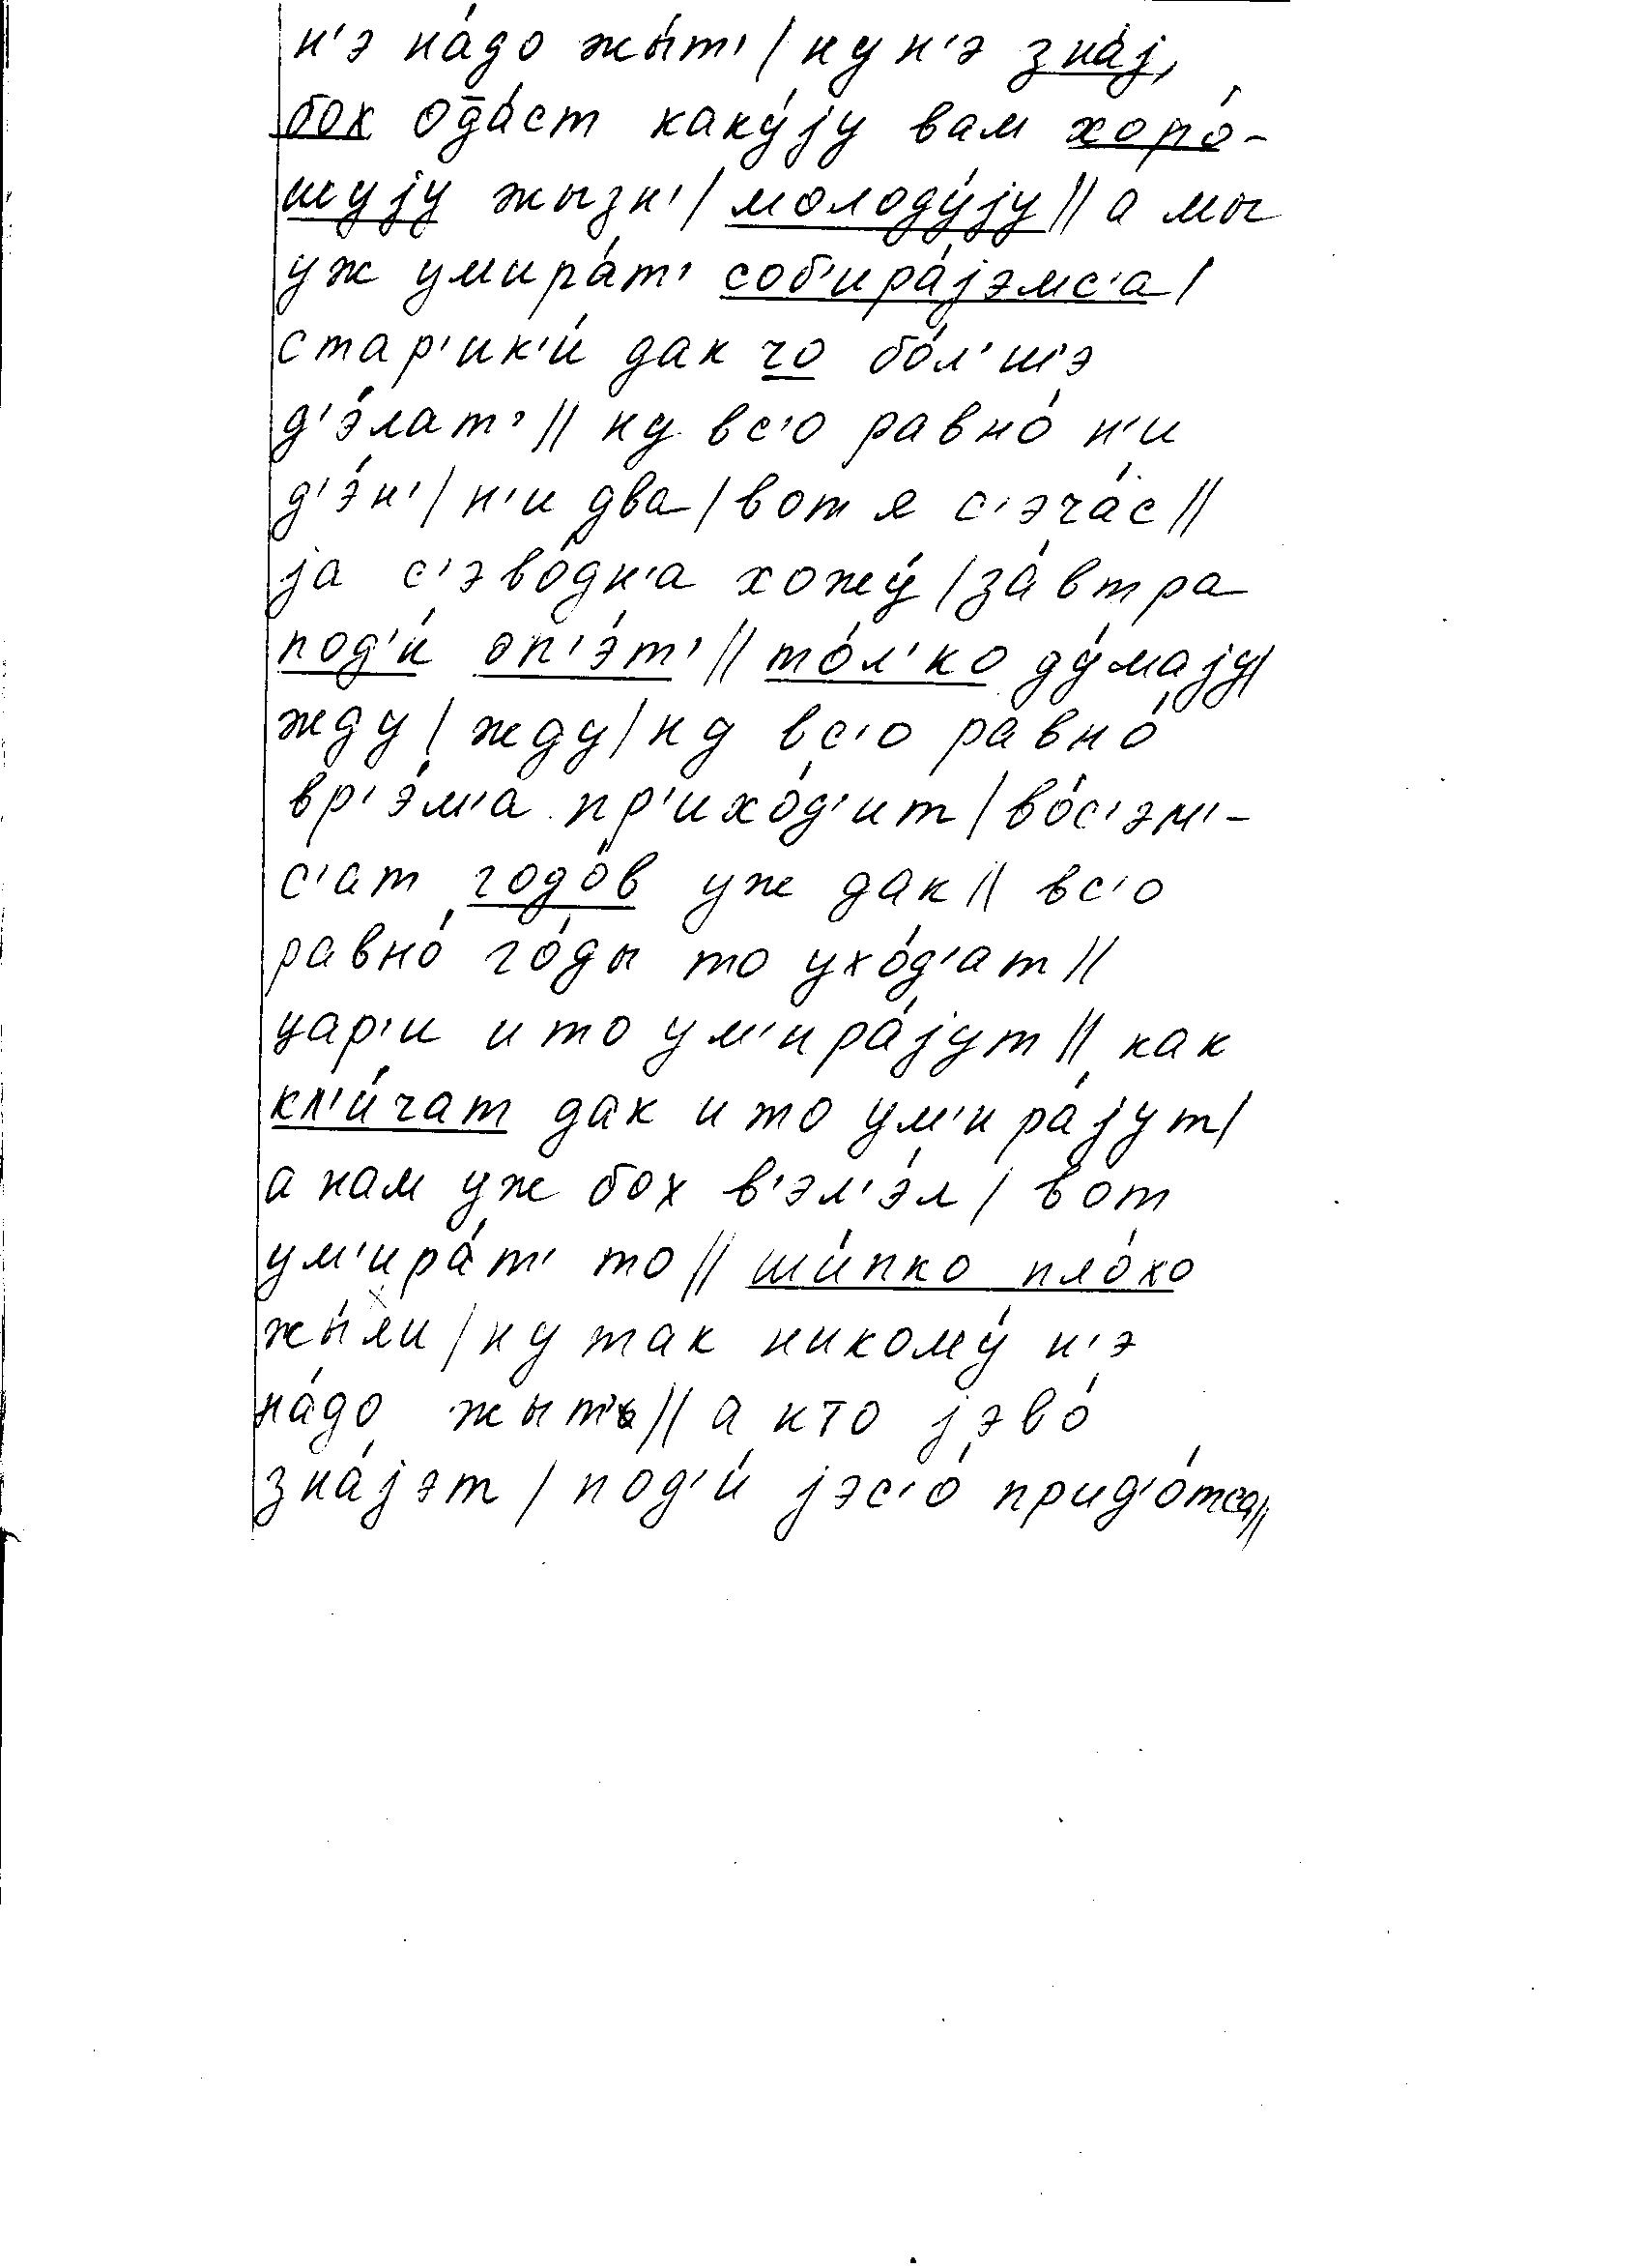 н'э на́до жы́т' / ну н'э зна́j,
бох од̄а́ст каку́jу вам хоро́-
шуjу жызн' / молоду́jу // а мы
уж умира́т' соб'ира́jэмс'а /
стар'ик'и́ дак чо бо́л'ш'э
д'э́лат' // ну вс'о равно́ н'и
д'э́н' / н'и два / вот я с'эча́с //
jа с'эво́дн'а хожу́ / за́втра
под'и́ оп'э́т' // то́л'ко ду́маjу/
жду / жду / ну вс'о равно́
вр'э́м'а пр'ихо́д'ит / во́с'эм'-
с'ат годо́в уж дак // вс'о
равно́ го́ды то ухо́д'ат //
цар'и и то ум'ира́jут // как
кл'и́чат дак и то ум'ира́jут /
а нам уж бох в'эл'э́л / вот
ум'ира́т' то // ши́пко пло́хо
жы́ли / ну так никому́ н'э
на́до жыть // а кто jэво́
зна́jэт / под'и́ jэс'о́ прид'о́тса//